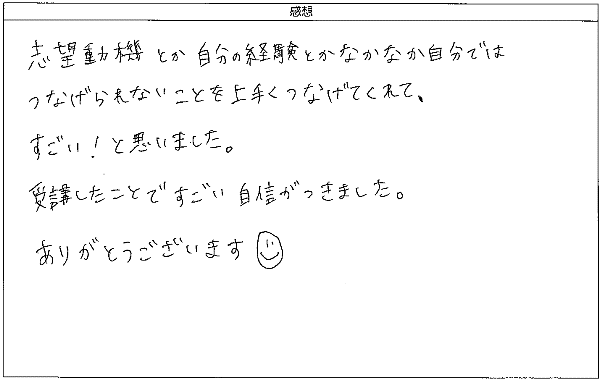 感想
志望動機とか自分の経験とかなかなか自分では
つなげられないことを上手くつなげてくれて、
すごい！と思いました。
受講したことですごい自信がつきました。
ありがとうございます